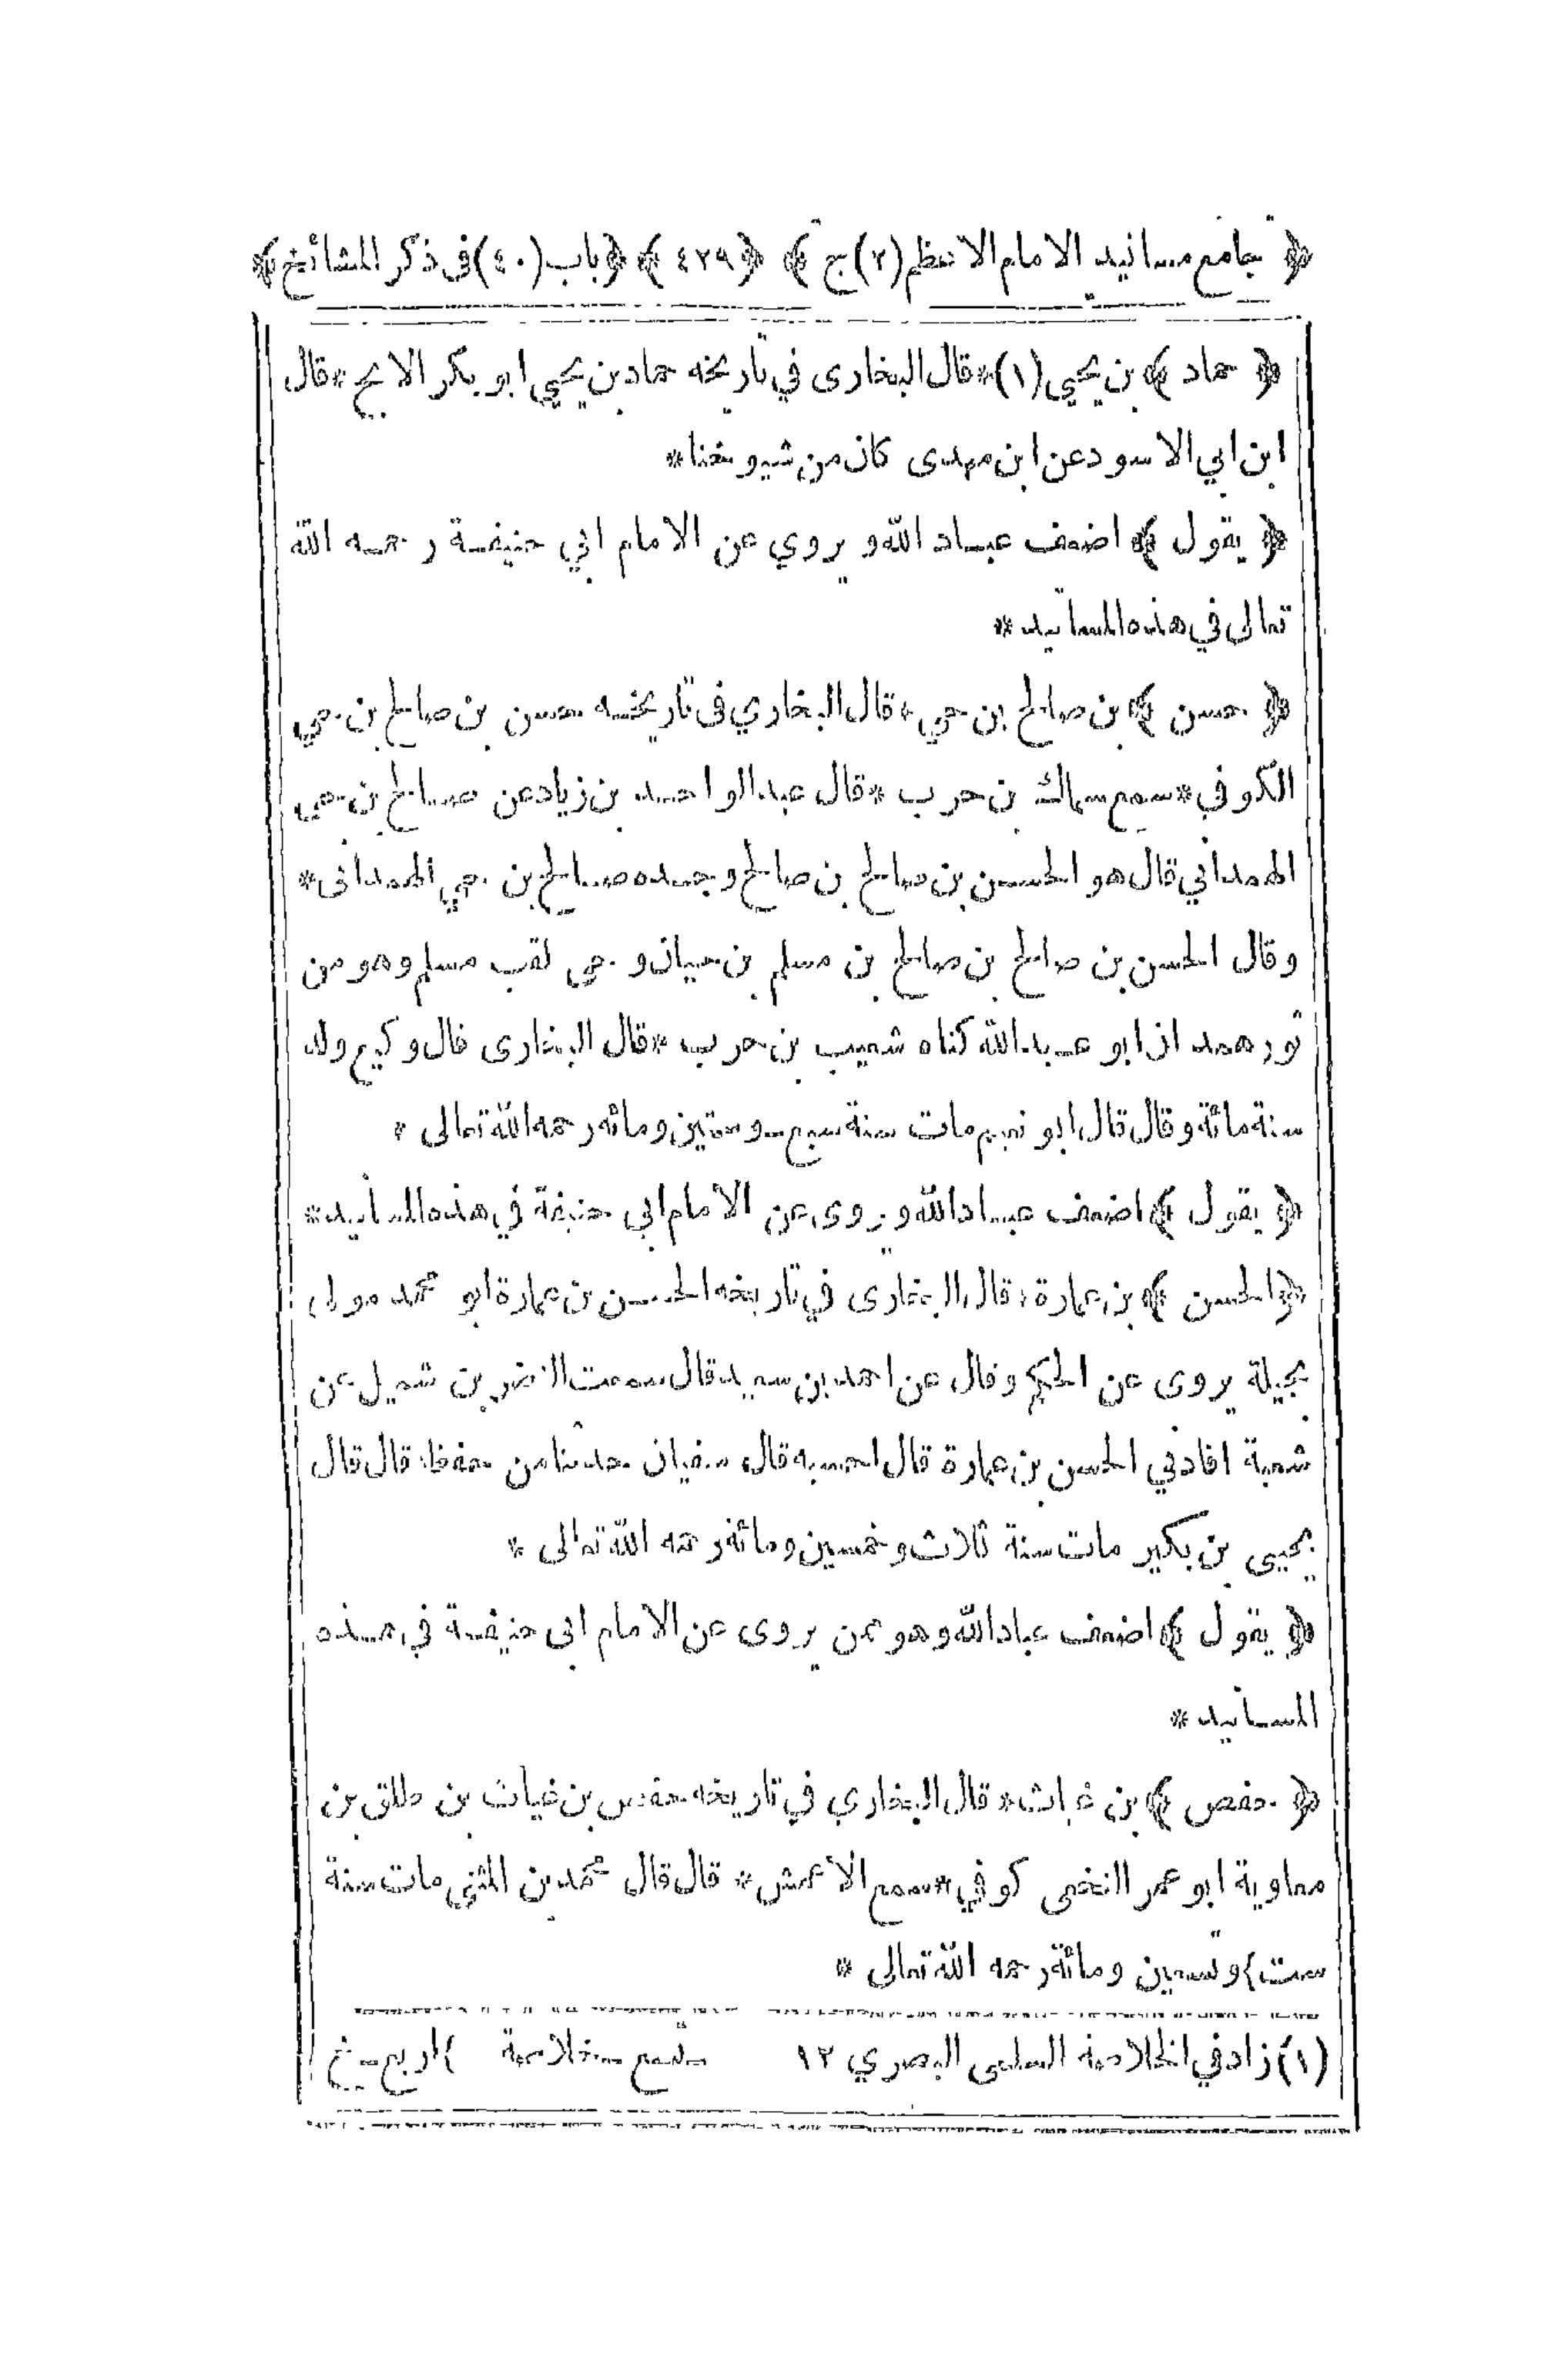 ﴿ جامع مسانيد الامام الاعظم (٢) ج ﴾ ﴿ ٤٢٩ ﴾ ﴿ باب (٤٠) فى ذكر المشائخ ﴾
﴿ حماد ﴾ بن يحيي (١) * قال البخارى في تاريخه حماد بن يحيي ابو بكر الابح * قال
ابن ابي الاسود عن ابن مهدى كان من شيوخنا *
﴿ يقول ﴾ اضعف عباد الله و يروي عن الامام ابي حنيفة رحمه الله
تعالى في هذه المسانيد *
﴿ حسن ﴾ بن صالح بن حي * قال البخاري فى تاريخه حسن بن صالح بن حي
الكوفي * سمع سماك بن حرب * قال عبد الواحد بن زياد عن صالح بن حى
الهمداني قال هو الحسن بن صالح بن صالح وجده صالح بن حي الهمدانى *
وقال الحسن بن صالح بن صالح بن مسلم بن حيان و حى لقب مسلم وهو من
ثور همد ان ابو عبد الله كناه شعيب بن حرب * قال البخارى قال وكيع ولد
سنة مائة وقال قال ابو نعيم مات سنة سبع وستين ومائه رحمه الله تعالى *
﴿ يقول ﴾ اضعف عباد الله و يروى عن الامام ابي حنيفة في هذه المسانيد *
﴿ الحسن ﴾ بن عمارة * قال البخارى في تاريخه الحسن بن عمارة ابو محمد مولى
بجيلة يروى عن الحكم وقال عن احمد بن سعيد قال سمعت النضر بن شميل عن
شعبة افادني الحسن بن عمارة قال احسبه قال سفيان حدثنا من حفظه قال قال
يحيى بن بكير مات سنة ثلاث وخمسين ومائه رحمه الله تعالى *
﴿ يقول ﴾ اضعف عباد الله وهو ممن يروى عن الامام ابى حنيفة في هذه
المسانيد *
﴿ حفص ﴾ بن غياث * قال البخاري في تاريخه حفص بن غياث بن طلق بن
معاوية ابو عمر النخعى كوفي * سمع الاعمش * قال قال محمد بن المثنى مات سنة
ست) وتسعين ومائة رحمه الله تعالى *
(١) زاد في الخلاصة السلمى البصري ١٢ خلاصة )اربع خ